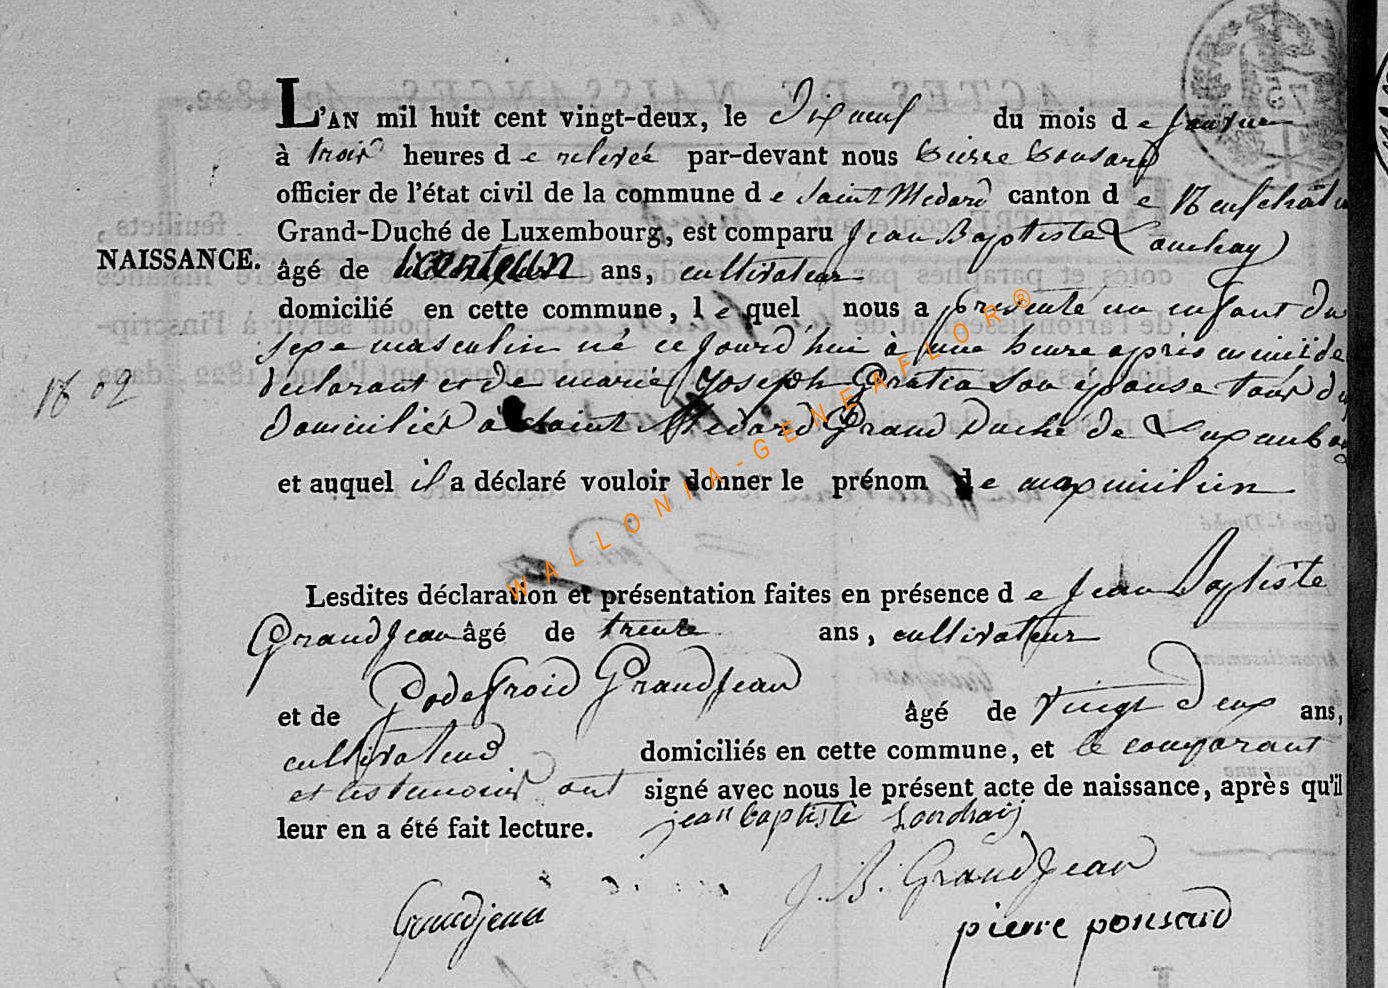 L'AN mil huit cent vingt-deux, le Dixneuf du mois de Janvier
à trois heures de relevée par-devant nous Pierre Ponsard
officier de l'état civil de la commune de Saint Medard canton de Neufchâteau
Grand-Duché de Luxembourg, est comparu Jean Baptiste Lonchay
NAISSANCE. âgé de ans, cultivateur
domicilié en cette commune, lequel nous a présenté un enfant du
sexe masculin né ce jourd'hui à une heure après midi de
declarant et de marie Joseph son epouse tous
domiciliés à Saint Medard Grand Duché de
et auquel il a déclaré vouloir donner le prénom de maximilien
Lesdites déclaration et présentation faites en présence de Jean Baptiste
GrandJean âgé de trente ans, cultivateur
et de Godefroid GrandJean âgé de vingt deux ans,
cultivateurs domiciliés en cette commune, et le comparant
et les temoins ont signé avec nous le présent acte de naissance, après qu'il
leur en a été fait lecture. jean baptiste Lonchaij
J. B. GrandJean
Grandjean
pierre ponsard
WALLONIA-GENEAFLOR®